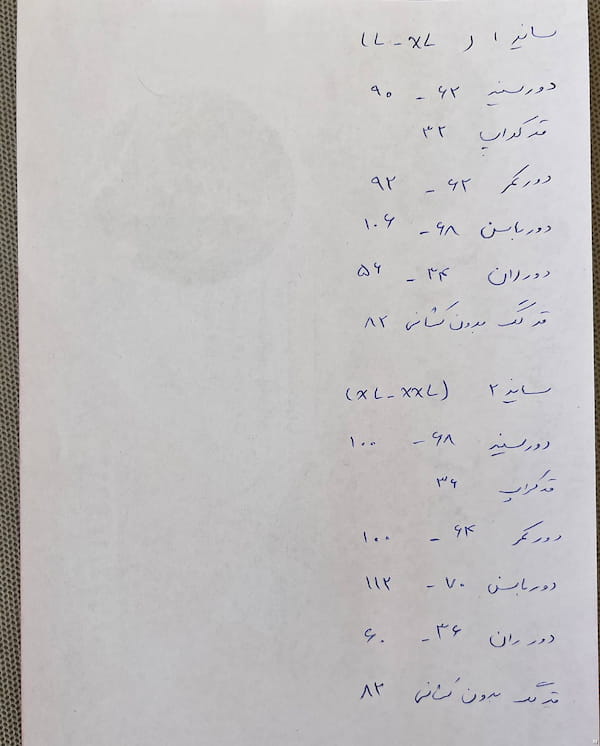 سایز ۱ (L-XL)
دور سینه ۶۲ - ۹۰
قد کراپ ۳۲
دور کمر ۶۲ - ۹۲
دور باسن ۶۸ - ۱۰۶
دور ران ۳۴ - ۵۶
قد لگ بدون کشانی ۸۲
سایز ۲ (XL-XXL)
دور سینه ۶۸ - ۱۰۰
قد کراپ ۳۶
دور کمر ۶۴ - ۱۰۰
دور باسن ۷۰ - ۱۱۲
دور ران ۳۶ - ۶۰
قد لگ بدون کشانی ۸۲